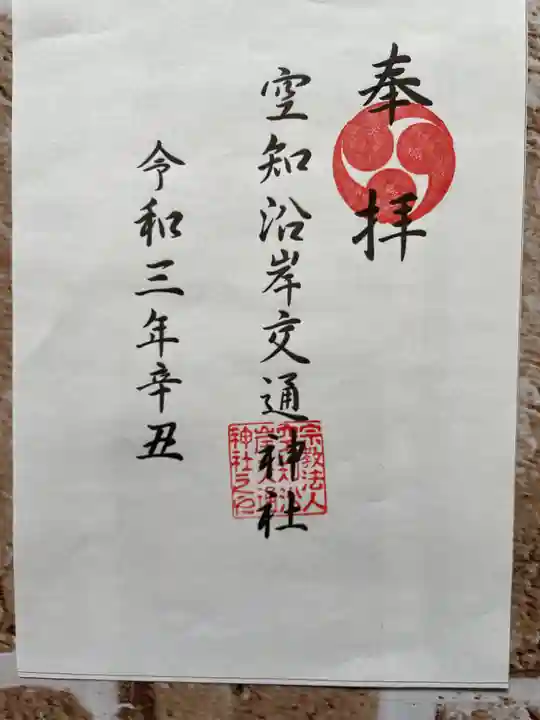 奉拝
空知沿岸交通神社
令和三年辛丑
宗教法人
空知沿
岸交通
神社之印